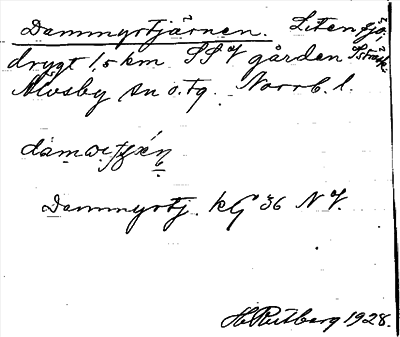 Dammyrtjärnen. Liten sjö,
drygt 1,5 km SSV gården Stråk.
Älvsby sn o. tg. Norrb. l.
Dammyrtj. KG 36 NV.
H. Rutberg 1928.